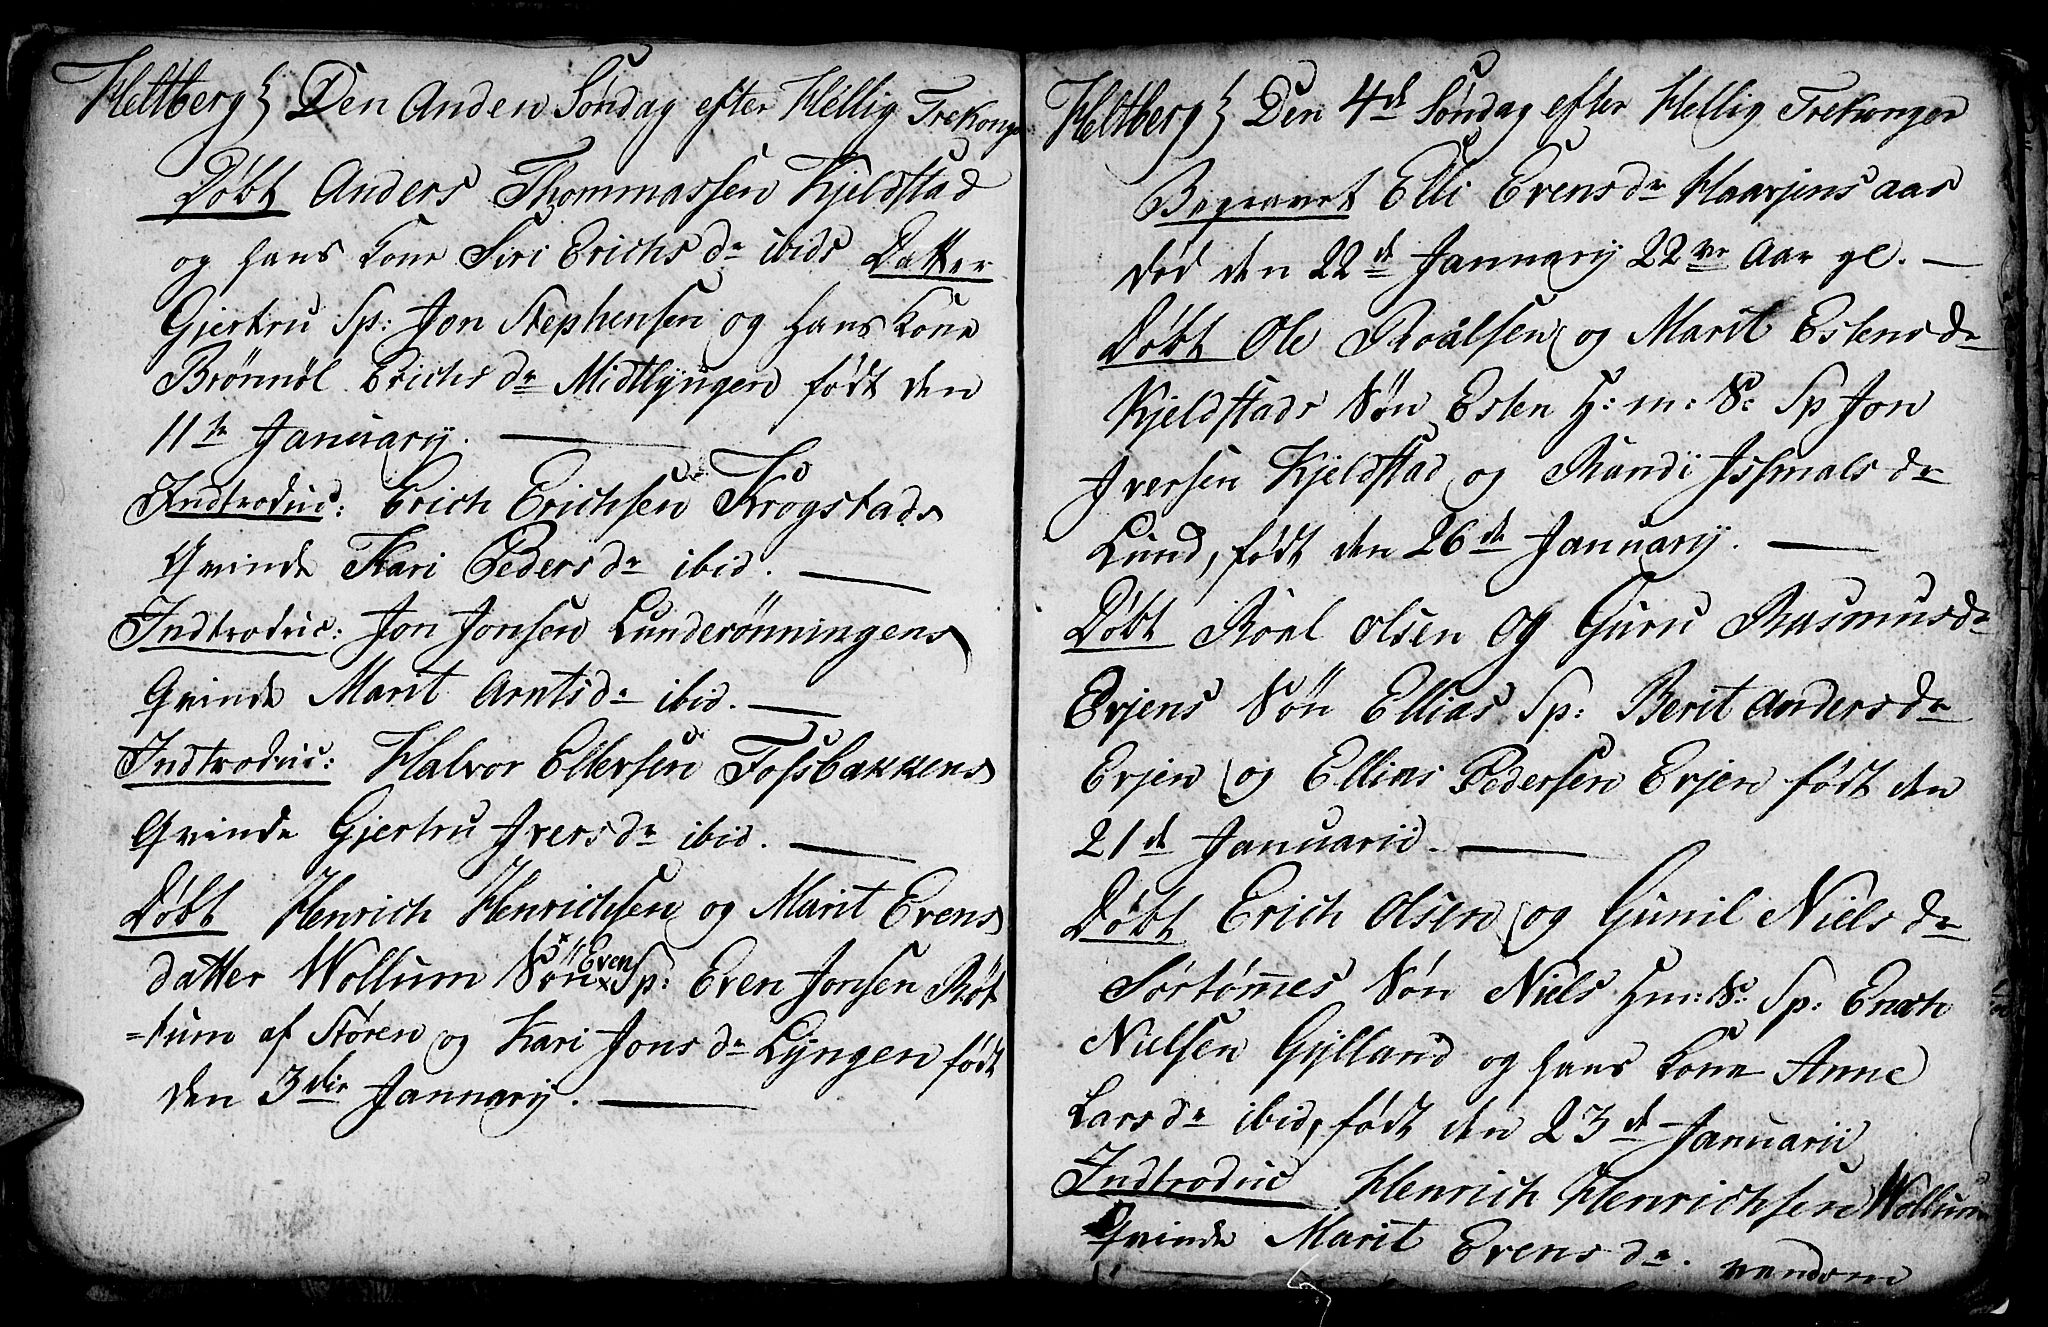 Heltberg } Den Anden Søndag efter Hellig Trekong
Døbt Anders Thommassen Kjeldstad
og hans Kone Siri Erichs dr ibids Datter
Gjertru Sp: Jon Stephensen og hans Kone
Brønnøl Erichs dr Midtlyngen født den
11te Januarÿ.
Indtroduc: Erich Erichsen Krogstads
Qvinde Kari Peders dr ibid.
Indtroduc: Jon Jonsen Lunderønningens
Qvinde Marit Arntsdr ibid.
Indtroduc: Halvor Ellersen Fossbakkens
Qvinde Gjertru Ivers dr ibid.
Døbt Henrich Henrichsen og Marit Evens
datter Wollum Søn Even Sp: Even Jonsen Røt
=tum af Støren og Kari Jons dr Lÿngen født
den 3die Januarÿ.
Heltberg } Den 4de Søndag efter Hellig Trekonger
Begravet Elli Evens dr Haarjens aas
død den 22de Januarÿ 22 Aar gl.
Døbt Ole Roålsen og Marit Estens dr
Kjeldstads Søn Esten H: m: S: Sp Jon
Iversen Kjeldstad og Randi Issmals dr
Lund, født den 26de Januarÿ.
Døbt Roal Olsen og Guru Rasmusdr
Evjens Søn Ellias Sp: Berit Anders dr
Evjen og Ellias Pedersen Evjen født den
21de Januarii.
Døbt Erich Olsen og Gunil Niels dr
Sørtømes Søn Niels Hm: S: Sp: Enoch
Nielsen Gylland og hans Kone Anne
Lars dr ibid, født den 23de Januarii
Indtroduc Henrich Henrichsen Wollum
Qvinde Marit Evens dr.